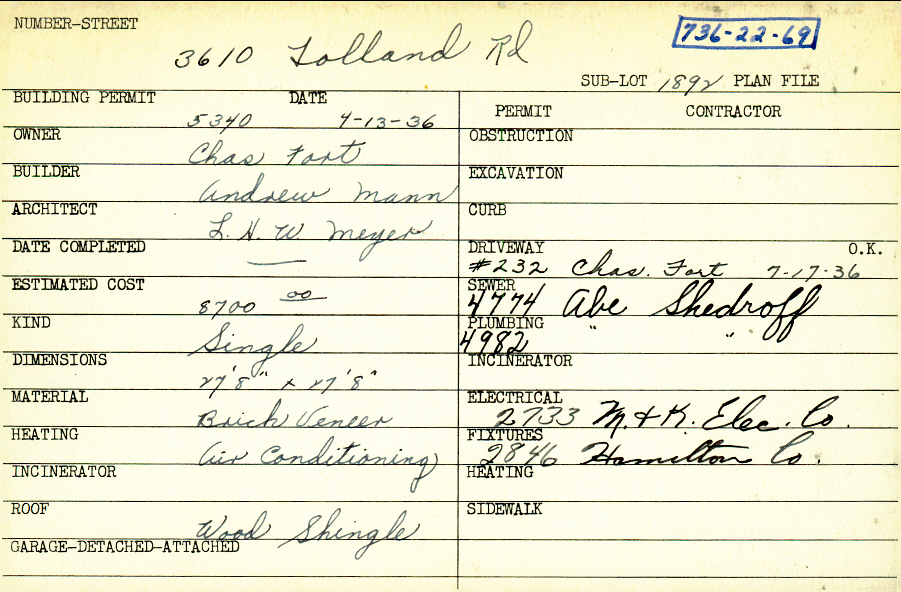 NUMBER-STREET
3610 Tolland Rd
736-22-69
SUB-LOT 1892 PLAN FILE
BUILDING PERMIT DATE
5340 4-13-36
OWNER
Chas Fort
BUILDER
Andrew Mann
ARCHITECT
L. H. W. Meyer
DATE COMPLETED
—
ESTIMATED COST
8700 00
KIND
Single
DIMENSIONS
27'8" x 27'8"
MATERIAL
Brick Veneer
HEATING
Air Conditioning
INCINERATOR
ROOF
Wood Shingle
GARAGE-DETACHED-ATTACHED
PERMIT CONTRACTOR
OBSTRUCTION
EXCAVATION
CURB
DRIVEWAY O.K.
#232 Chas. Fort 7-17-36
SEWER
4774 Abe Shedroff
PLUMBING
4982 " "
INCINERATOR
ELECTRICAL
2733 M. & K. Elec. Co.
FIXTURES
2846 Hamilton Co.
HEATING
SIDEWALK